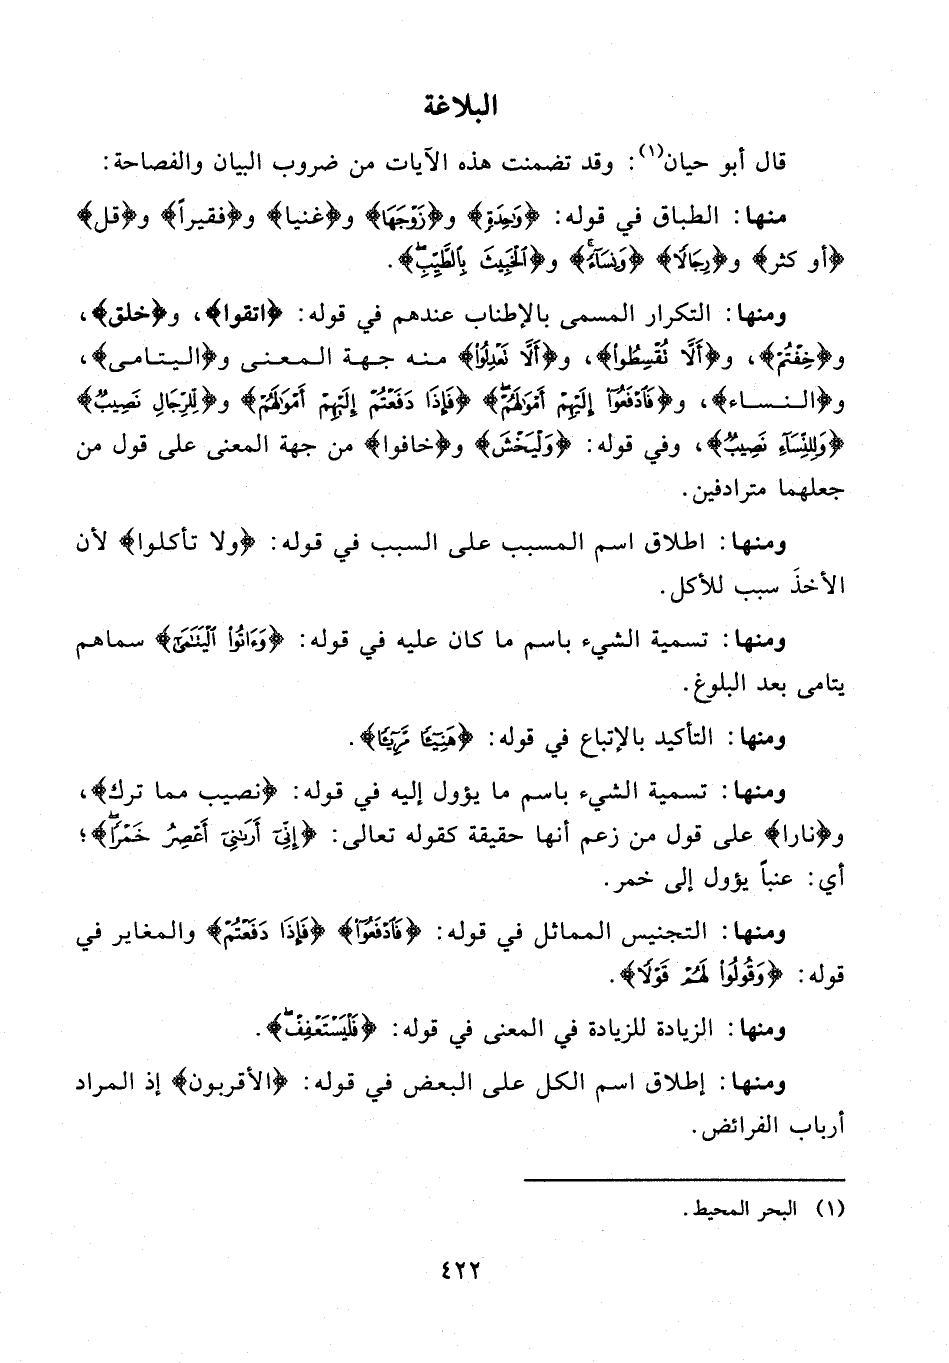 البلاغة
قال أبو حيان(١): وقد تضمنت هذه الآيات من ضروب البيان والفصاحة:
منها: الطباق في قوله: ﴿وَٰحِدَةٍ﴾ و﴿زَوْجَهَا﴾ و﴿غنيا﴾ و﴿فقيراً﴾ و﴿قل﴾
﴿أو كثر﴾ و﴿رِجَالًا﴾ ﴿وَنِسَآءً﴾ و﴿ٱلْخَبِيثَ بِٱلطَّيِّبِ﴾.
ومنها: التكرار المسمى بالإطناب عندهم في قوله: ﴿اتقوا﴾، و﴿خلق﴾،
و﴿خِفْتُمْ﴾، و﴿أَلَّا نُقْسِطُوا۟﴾، و﴿أَلَّا نَعْدِلُوا۟﴾ منه جهة المعنى و﴿اليتامى﴾،
و﴿النساء﴾، و﴿فَٱدْفَعُوٓا۟ إِلَيْهِمْ أَمْوَٰلَهُمْ﴾ ﴿فَإِذَا دَفَعْتُمْ إِلَيْهِمْ أَمْوَٰلَهُمْ﴾ و﴿لِّلرِّجَالِ نَصِيبٌ﴾
﴿وَلِلنِّسَآءِ نَصِيبٌ﴾، وفي قوله: ﴿وَلْيَخْشَ﴾ و﴿خافوا﴾ من جهة المعنى على قول من
جعلهما مترادفين.
ومنها: اطلاق اسم المسبب على السبب في قوله: ﴿ولا تأكلوا﴾ لأن
الأخذَ سبب للأكل.
ومنها: تسمية الشيء باسم ما كان عليه في قوله: ﴿وَءَاتُوا۟ ٱلْيَتَٰمَىٰٓ﴾ سماهم
يتامى بعد البلوغ.
ومنها: التأكيد بالإتباع في قوله: ﴿هَنِيٓـًٔا مَّرِيٓـًٔا﴾.
ومنها: تسمية الشيء باسم ما يؤول إليه في قوله: ﴿نصيب مما ترك﴾،
و﴿نارا﴾ على قول من زعم أنها حقيقة كقوله تعالى: ﴿إِنِّىٓ أَرَىٰنِىٓ أَعْصِرُ خَمْرًا﴾؛
أي: عنباً يؤول إلى خمر.
ومنها: التجنيس المماثل في قوله: ﴿فَٱدْفَعُوٓا۟﴾ ﴿فَإِذَا دَفَعْتُمْ﴾ والمغاير في
قوله: ﴿وَقُولُوا۟ لَهُمْ قَوْلًا﴾.
ومنها: الزيادة للزيادة في المعنى في قوله: ﴿فَلْيَسْتَعْفِفْ﴾.
ومنها: إطلاق اسم الكل على البعض في قوله: ﴿الأقربون﴾ إذ المراد
أرباب الفرائض.
(١) البحر المحيط.
٤٢٢